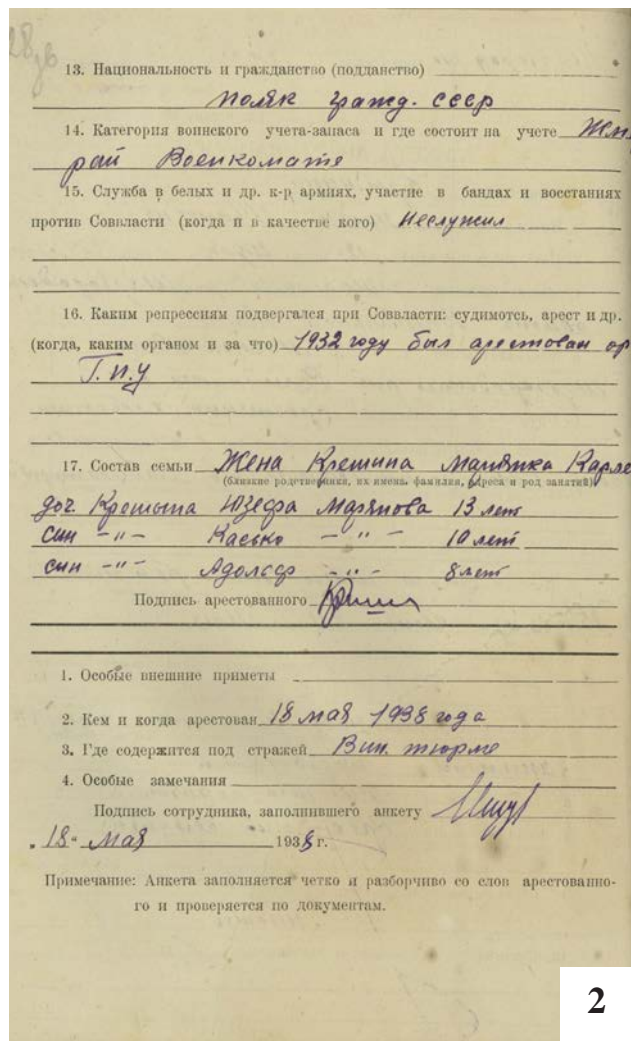 13. Национальность и гражданство (подданство)
поляк гражд. ссср
14. Категория воинского учета-запаса и где состоит на учете
рай Военкомате
15. Служба в белых и др. к-р армиях, участие в бандах и восстаниях
против Соввласти (когда и в качестве кого) Неслужил
16. Каким репрессиям подвергался при Соввласти: судимотсь, арест и др.
(когда, каким органом и за что) 1932 году был арестован ор
Г.п.у
17. Состав семьи Жена Крешина Марянка Карло
(близкие родственники, их имена, фамилия, адреса и род занятий)
доч. Крешина Юзефа Марянова 13 лет
син -"- Касько -"- 10 лет
син -"- Адольф -"- 8 лет
Подпись арестованного
1. Особые внешние приметы
2. Кем и когда арестован 18 мая 1938 года
3. Где содержится под стражей Вин. тюрме
4. Особые замечания
Подпись сотрудника, заполнившего анкету
„18“ мая 1938 г.
Примечание: Анкета заполняется четко и разборчиво со слов арестованно-
го и проверяется по документам.
2